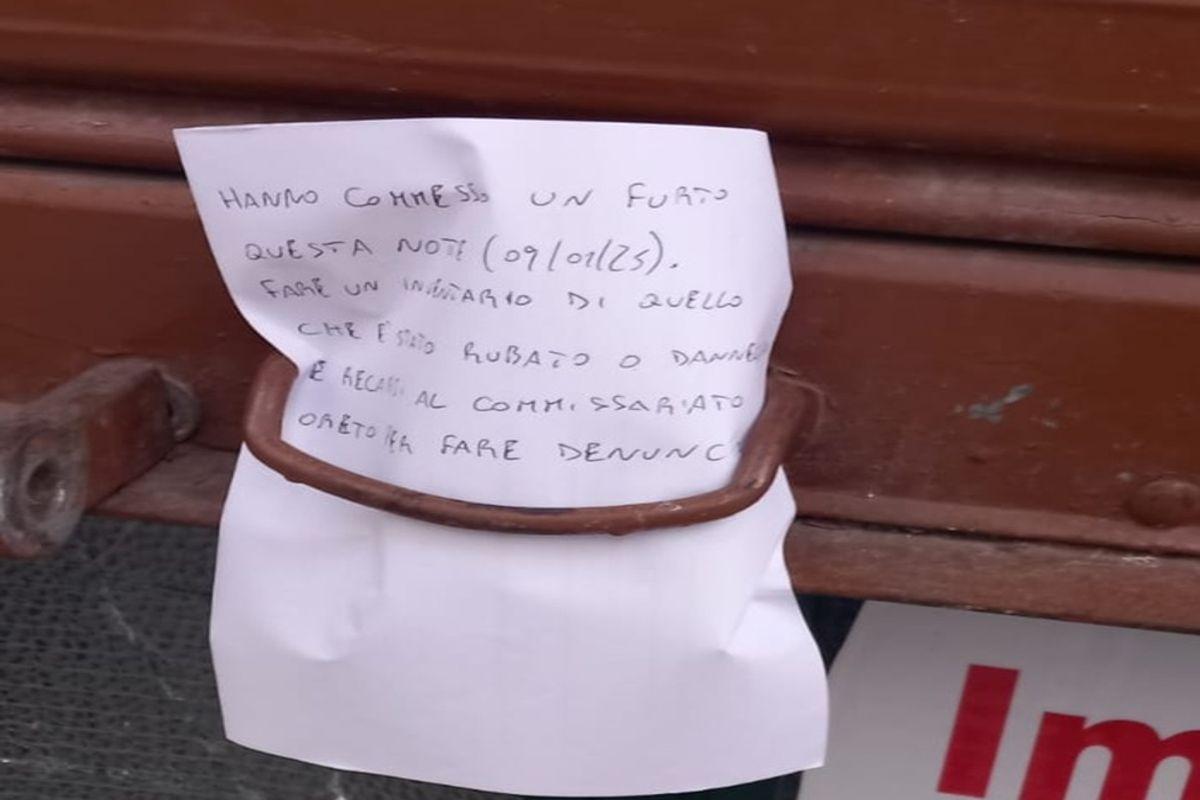 HANNO COMMESSO UN FURTO
QUESTA NOTE (09/01/25).
FARE UN INVENTARIO DI QUELLO
CHE È STATO RUBATO O DANNE
E RECARSI AL COMMISSARIATO
ORETO PER FARE DENUNC
Im